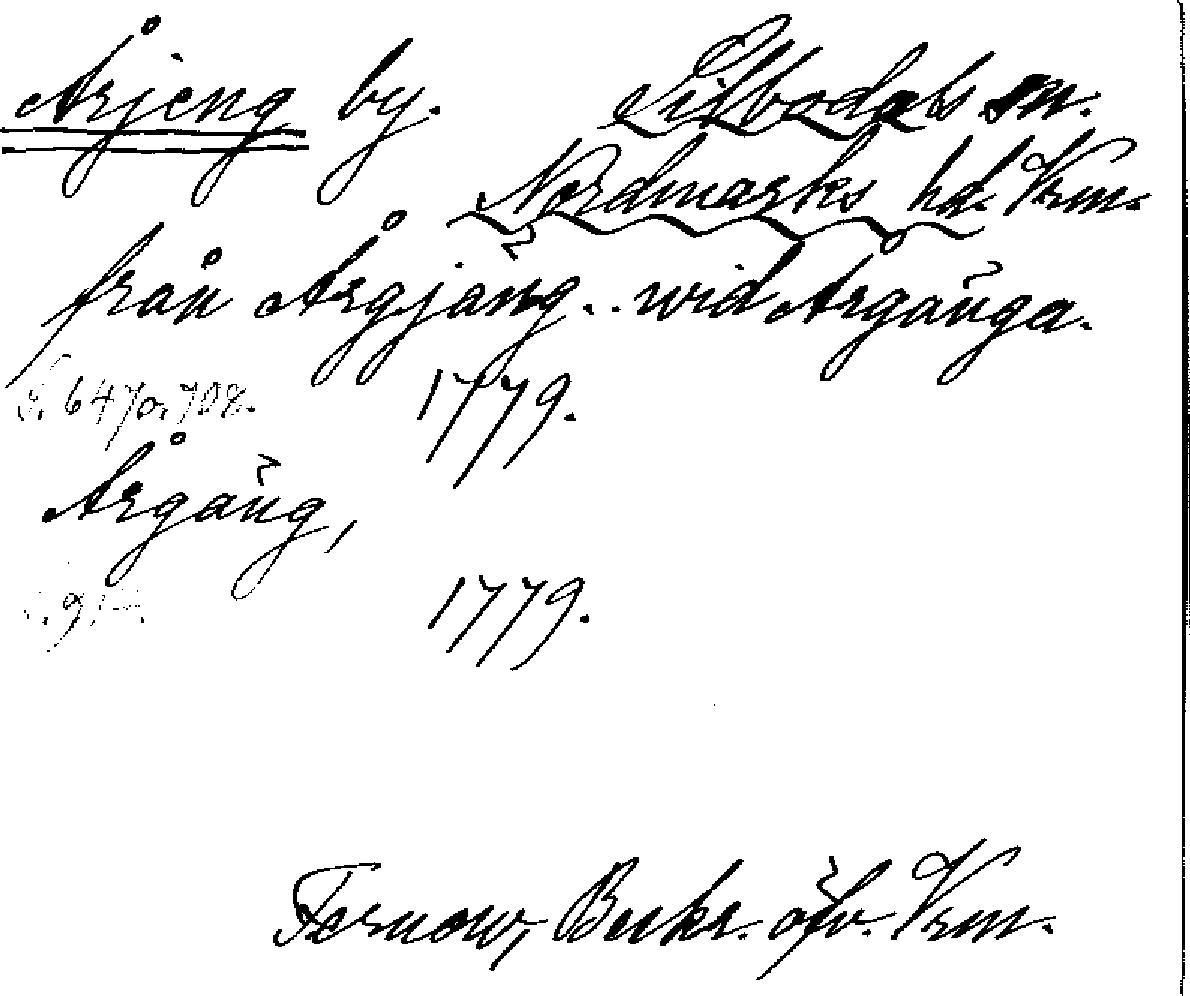 Årjeng by. Silbodals sn.
Nordmarks hd. Vrm.
från Årgjäng.. wid Årgänga.
S. 647 o. 708. 1779.
Årgäng,
1779.
Fernow, Beskr. öfv. Vrm.